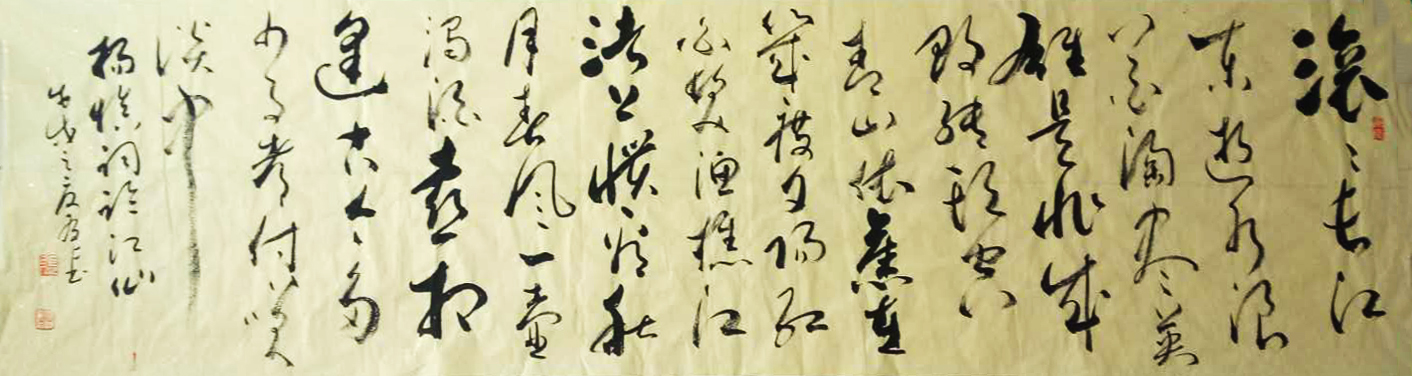 滚々长江
东逝水浪
花淘尽英
雄是非成
败转头空
青山依舊在
幾度夕阳红
白髮渔樵江
渚上惯看秋
月春风一壶
浊酒喜相
逢古今多
少事都付笑
谈中
杨慎词临江仙
戊戌之夏